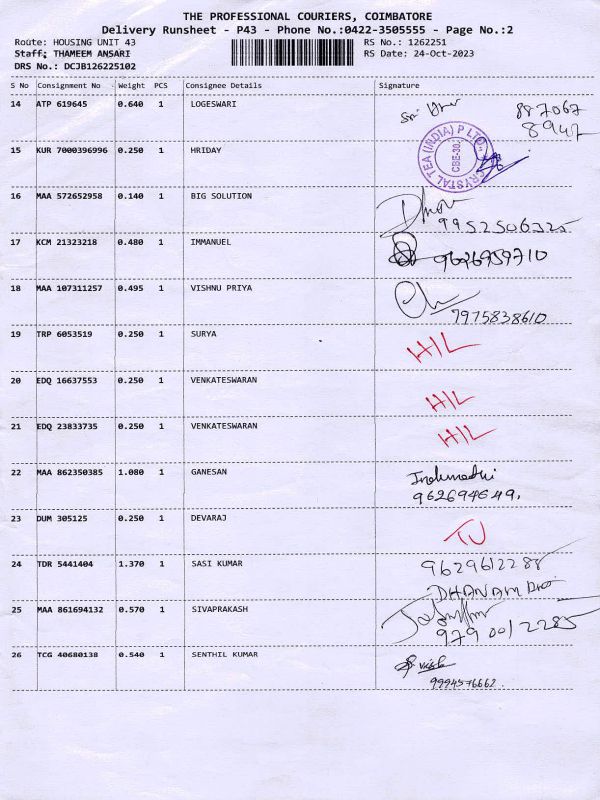 THE PROFESSIONAL COURIERS, COIMBATORE
Delivery Runsheet - P43 - Phone No.:0422-3505555 - Page No.:2
Route: HOUSING UNIT 43 RS No.: 1262251
Staff: THAMEEM ANSARI RS Date: 24-Oct-2023
DRS No.: DCJB126225102
S No Consignment No Weight PCS Consignee Details Signature
14 ATP 619645 0.640 1 LOGESWARI 887067
8947
15 KUR 7000396996 0.250 1 HRIDAY CRYSTAL TEA (INDIA) P LTD. CBE-30.
16 MAA 572652958 0.140 1 BIG SOLUTION
9952506325
17 KCM 21323218 0.480 1 IMMANUEL 9626959710
18 MAA 107311257 0.495 1 VISHNU PRIYA
7975838610
19 TRP 6053519 0.250 1 SURYA H/L
20 EDQ 16637553 0.250 1 VENKATESWARAN H/L
21 EDQ 23833735 0.250 1 VENKATESWARAN H/L
22 MAA 862350385 1.080 1 GANESAN Indumathi
962694649.
23 DUM 305125 0.250 1 DEVARAJ TJ
24 TDR 5441404 1.370 1 SASI KUMAR 9629612288
DHANAM
25 MAA 861694132 0.570 1 SIVAPRAKASH
9790012285
26 TCG 40680138 0.540 1 SENTHIL KUMAR
9994576662.